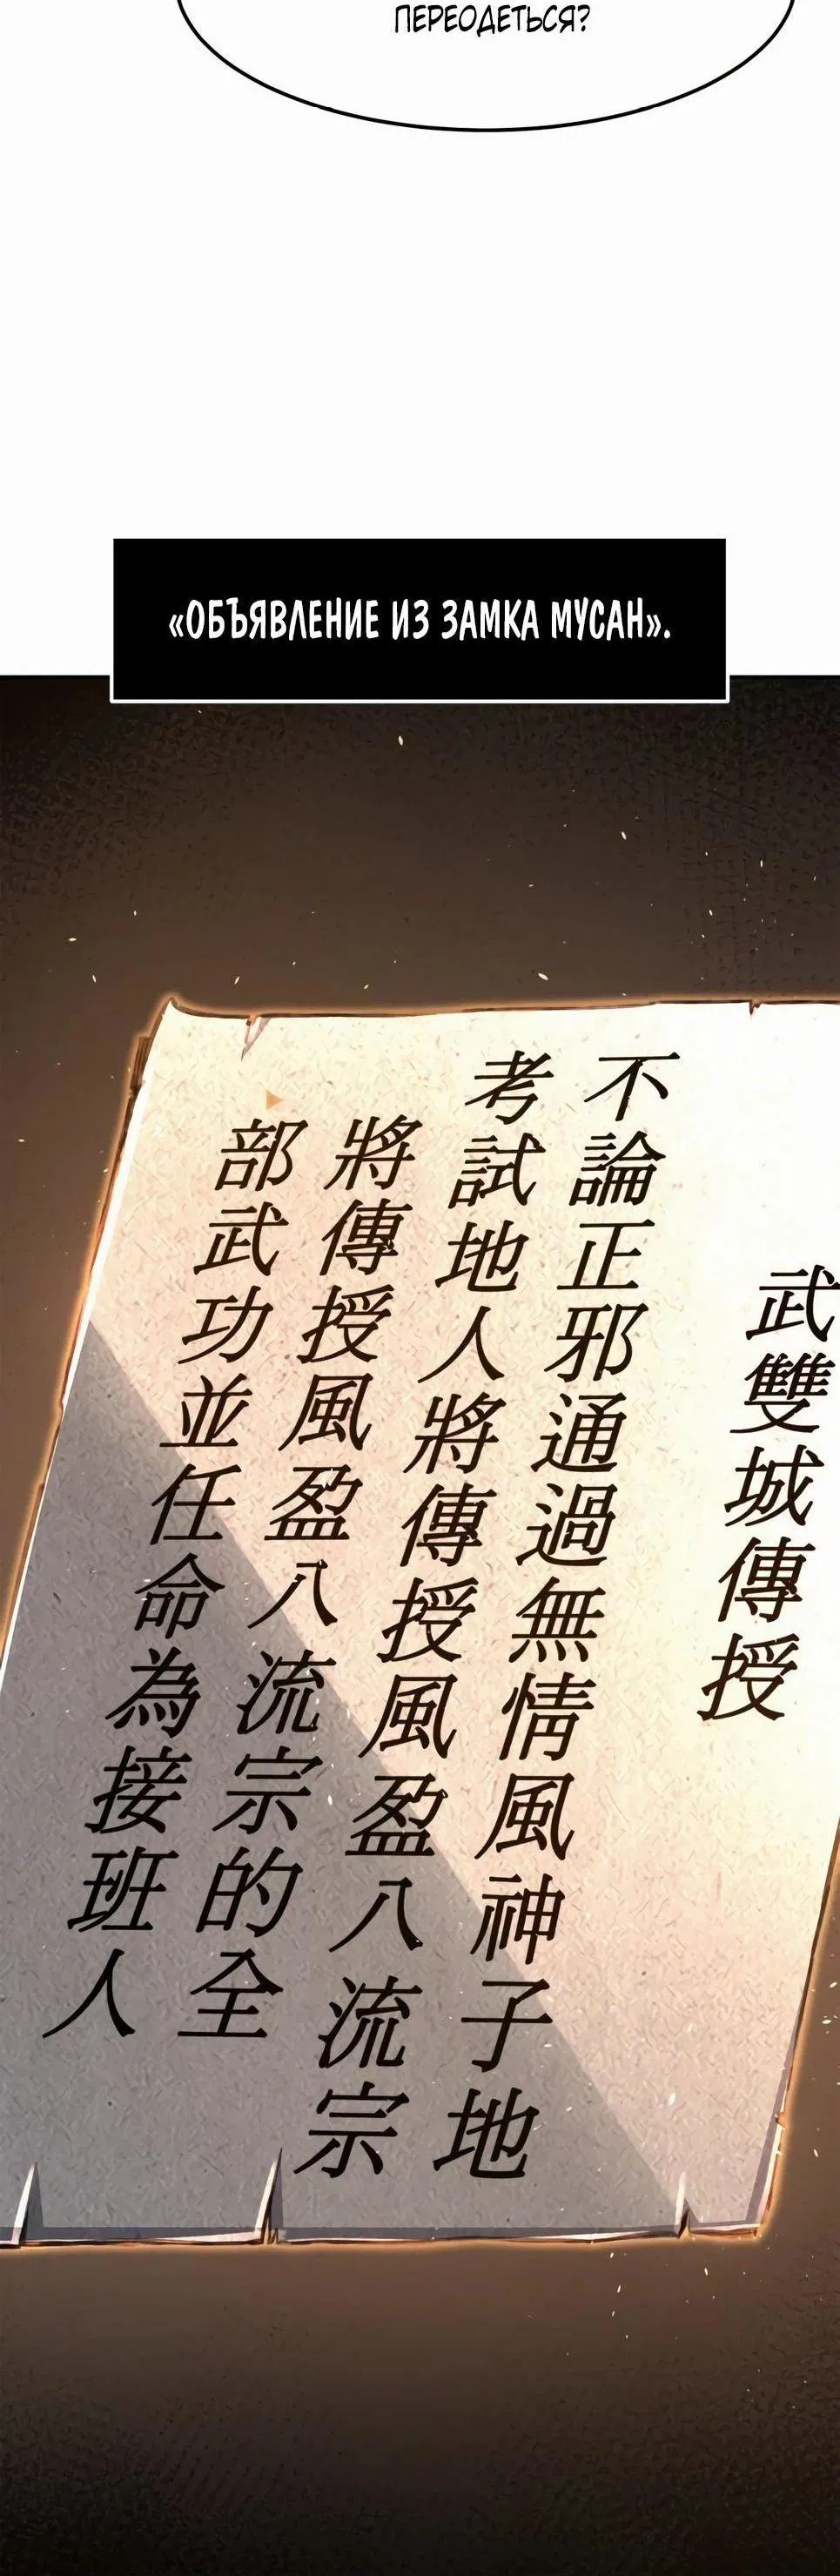 ПЕРЕОДЕТЬСЯ?
«ОБЪЯВЛЕНИЕ ИЗ ЗАМКА МУСАН».
武雙城傳授
不論正邪通過無情風神子地
考試地人將傳授風盈八流宗
將傳授風盈八流宗的全
部武功並任命為接班人